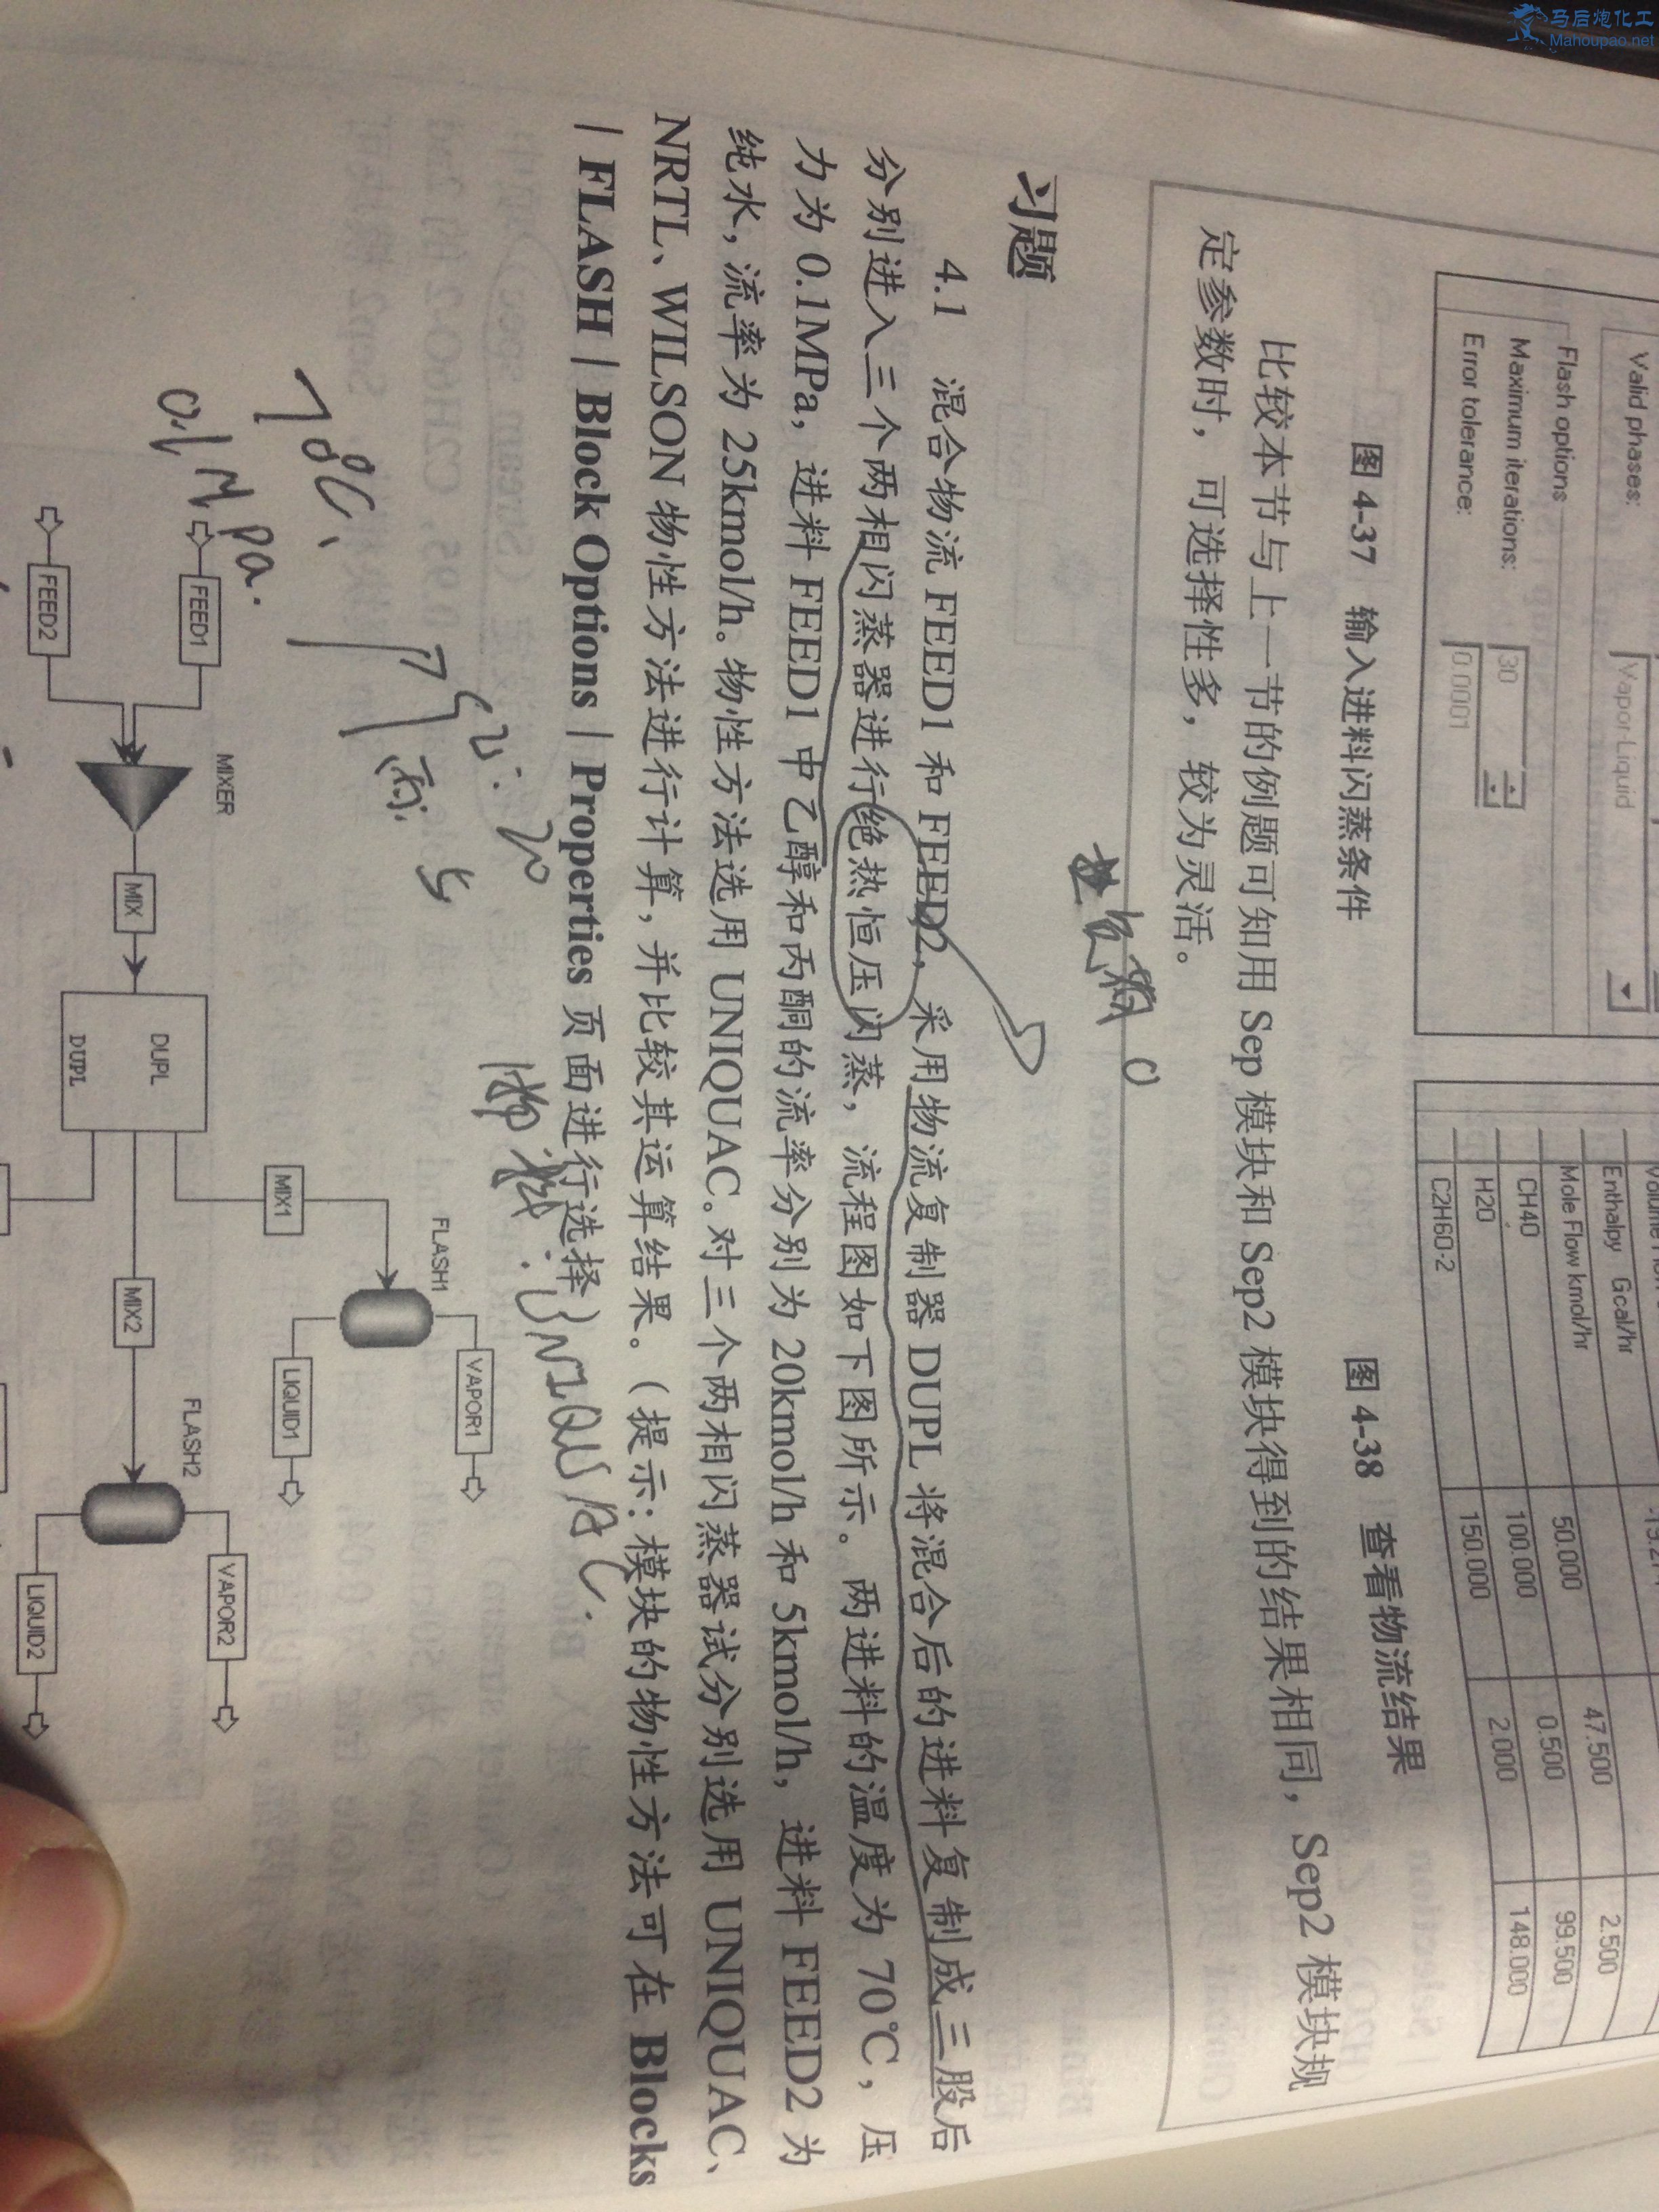 马后炮化工
Mahoupao.net
Valid phases:
Vapor-Liquid
Flash options
Maximum iterations:
30
Error tolerance:
0.0001
Enthalpy Gcal/hr
Mole Flow kmol/hr
CH4O
50.000
47.500
2.500
H2O
100.000
0.500
99.500
C2H6O-2
150.000
2.000
148.000
图 4-37 输入进料闪蒸条件
图 4-38 查看物流结果
比较本节与上一节的例题可知用 Sep 模块和 Sep2 模块得到的结果相同，Sep2 模块规
定参数时，可选择性多，较为灵活。
习题
4.1 混合物流 FEED1 和 FEED2，采用物流复制器 DUPL 将混合后的进料复制成三股后
分别进入三个两相闪蒸器进行绝热恒压闪蒸，流程图如下图所示。两进料的温度为 70℃，压
力为 0.1MPa，进料 FEED1 中乙醇和丙酮的流率分别为 20kmol/h 和 5kmol/h，进料 FEED2 为
纯水，流率为 25kmol/h。物性方法选用 UNIQUAC。对三个两相闪蒸器试分别选用 UNIQUAC、
NRTL、WILSON 物性方法进行计算，并比较其运算结果。（提示：模块的物性方法可在 Blocks
| FLASH | Block Options | Properties 页面进行选择）
70℃、
0.1Mpa.
乙: 20
丙: 5
UNIQUAC.
FEED1
FEED2
MIXER
MIX
DUPL
DUPL
MIX1
FLASH1
VAPOR1
LIQUID1
MIX2
FLASH2
VAPOR2
LIQUID2